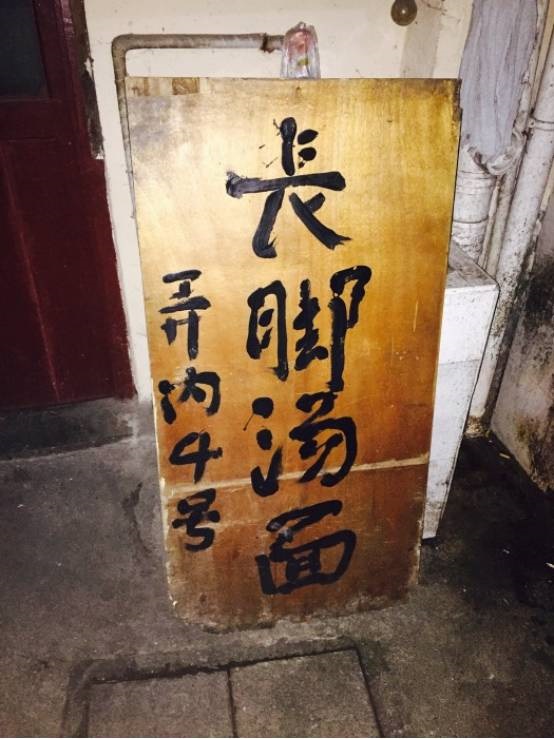 長脚汤面
弄内4号